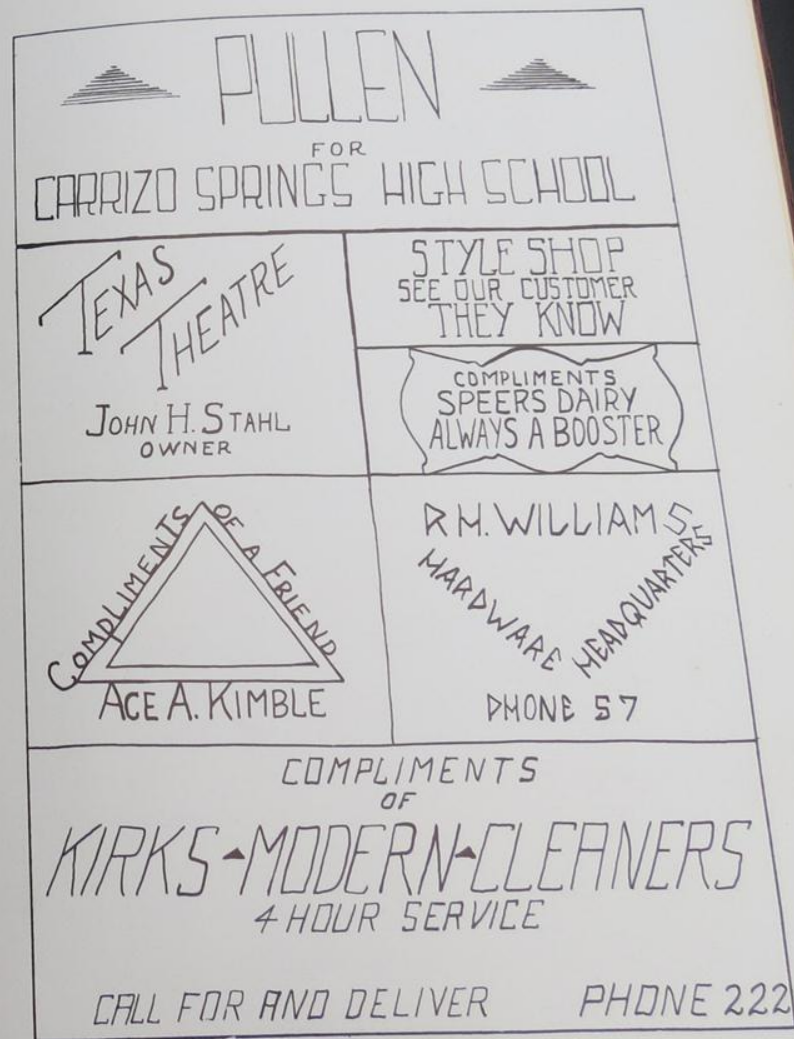 PULLEN
FOR
CARRIZO SPRINGS HIGH SCHOOL
TEXAS
THEATRE
JOHN H. STAHL
OWNER
STYLE SHOP
SEE OUR CUSTOMER
THEY KNOW
COMPLIMENTS
SPEERS DAIRY
ALWAYS A BOOSTER
COMPLIMENTS OF A FRIEND
ACE A. KIMBLE
R.H. WILLIAMS
HARDWARE HEADQUARTERS
PHONE 57
COMPLIMENTS
OF
KIRKS MODERN CLEANERS
4 HOUR SERVICE
CALL FOR AND DELIVER PHONE 222